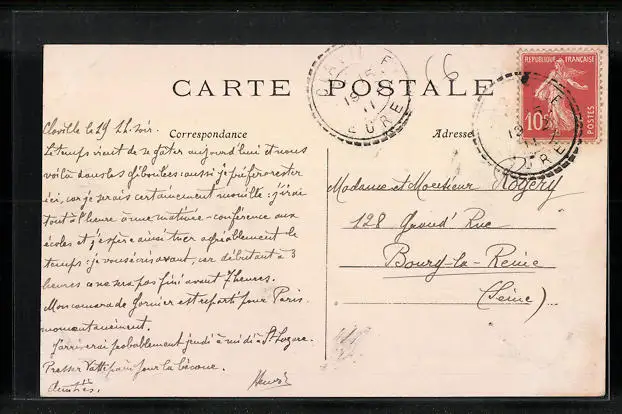 CARTE POSTALE
REPUBLIQUE FRANÇAISE
10c
POSTES
EURE
Correspondance
Adresse
soir.
Le temps vient de se gâter aujourd'hui et nous
voilà dans les giboulées aussi je préfère rester
ici, car je serais certainement mouillé : j'irai
tout à l'heure à une matinée-conférence aux
écoles et j'espère ainsi tuer agréablement le
temps : je vous écris avant, car débutant à 3
heures ce ne sera pas fini avant 7 heures.
Mon camarade est reparti pour Paris
momentanément.
J'arriverai probablement jeudi à midi à St Lazare.
pour la bécasse.
Amitiés.
Madame et Monsieur Rogery
128 Grand' Rue
Bourg-la-Reine
(Seine)